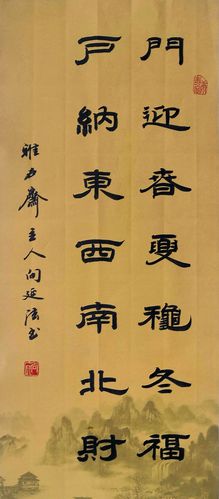 門迎春夏龝冬福
戶納東西南北財
主人向延法书